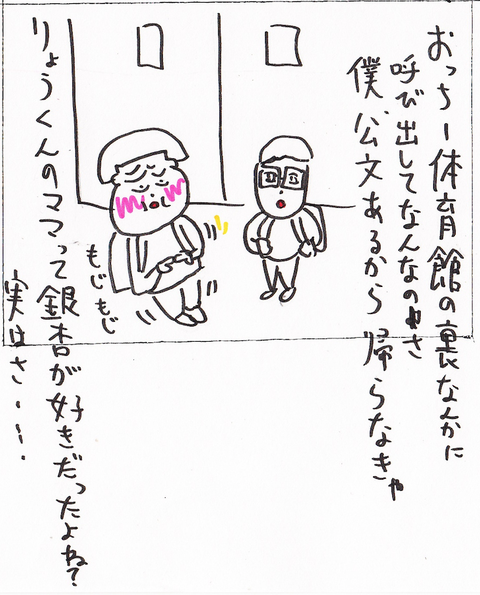 おっちー体育館の裏なんかに
呼び出してなんなのさ
僕、公文あるから帰らなきゃ
もじもじ
りょうくんのママって銀杏が好きだったよね？
実はさ・・・.